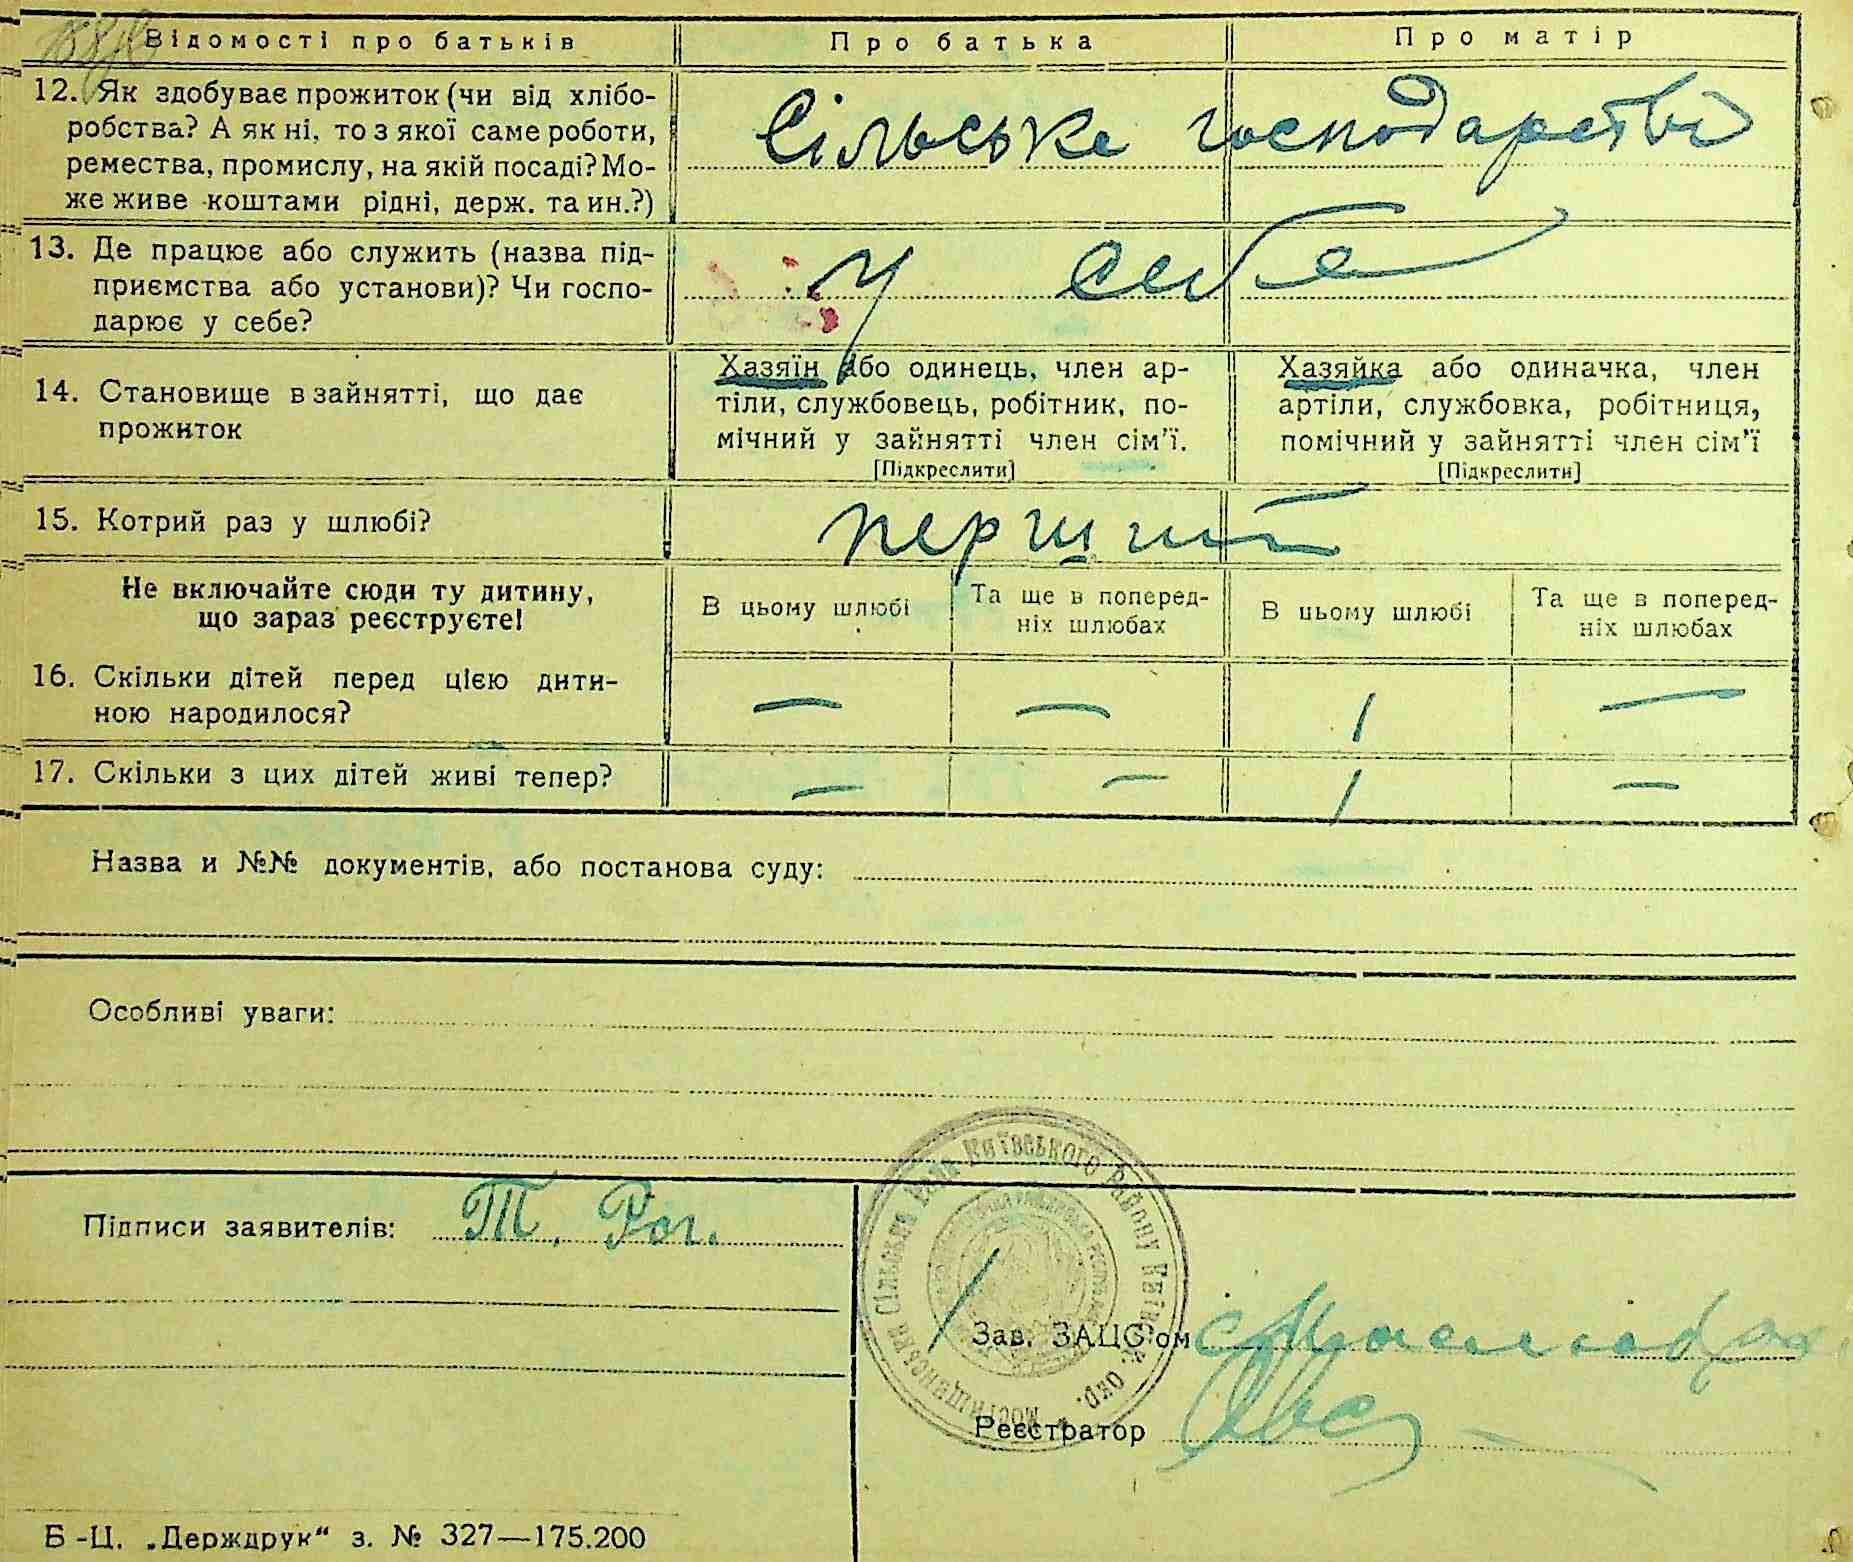 Відомості про батьків
Про батька
Про матір
12. Як здобуває прожиток (чи від хлібо-
робства? А як ні, то з якої саме роботи,
ремества, промислу, на якій посаді? Мо-
же живе коштами рідні, держ. та ин.?)
Сільське господарство
13. Де працює або служить (назва під-
приємства або установи)? Чи госпо-
дарює у себе?
у себе
14. Становище в зайнятті, що дає
прожиток
Хазяїн або одинець, член ар-
тіли, службовець, робітник, по-
мічний у зайнятті член сім'ї.
[Підкреслити]
Хазяйка або одиначка, член
артіли, службовка, робітниця,
помічний у зайнятті член сім'ї
[Підкреслити]
15. Котрий раз у шлюбі?
перший
Не включайте сюди ту дитину,
що зараз реєструєте!
В цьому шлюбі
Та ще в поперед-
ніх шлюбах
В цьому шлюбі
Та ще в поперед-
ніх шлюбах
16. Скільки дітей перед цією дити-
ною народилося?
— — 1 —
17. Скільки з цих дітей живі тепер?
— — 1 —
Назва и №№ документів, або постанова суду:
Особливі уваги:
Підписи заявителів: Т. Рог.
Сільська Рада Київського Району Київськ. Окр.
Зав. ЗАЦС'ом
Реєстратор
Б-Ц. „Держдрук“ з. № 327—175.200